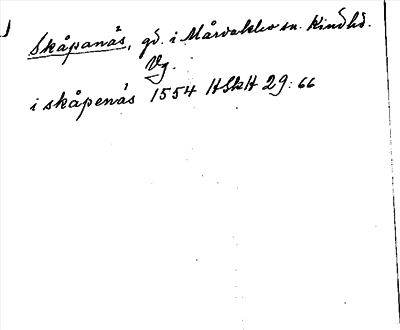 Skåpanäs, gd. i Mårdaklev sn. Kinds hd.
Vg.
i skåpenäs 1554 HSkH 29:66